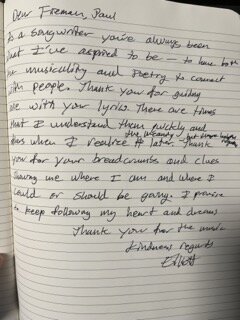 Dear Foreman, Paul
As a songwriter you've always been
what I've aspired to be — to have both
the musicality and Poetry to connect
with people. Thank you for guiding
me with your lyrics. There are times
that I understand them quickly and
times when I realize it later. Thank
you for your breadcrumbs and clues
showing me where I am and where I
could or should be going. I promise
to keep following my heart and dreams
Thank you for the music
Kindness regards
Elliott